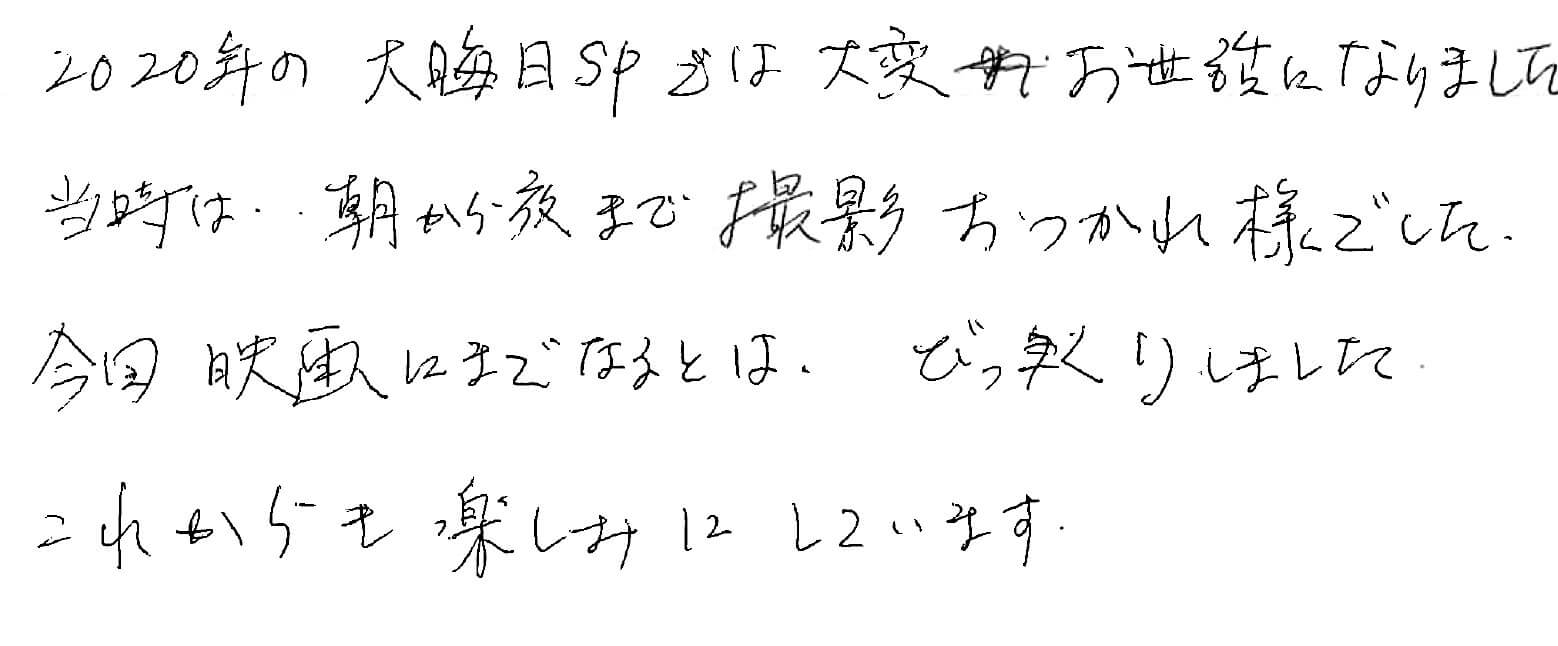 2020年の 大晦日SPでは 大変 お世話になりました
当時は.. 朝から夜まで 撮影 おつかれ様でした.
今回 映画にまでなるとは. びっくりしました.
これからも 楽しみに しています.